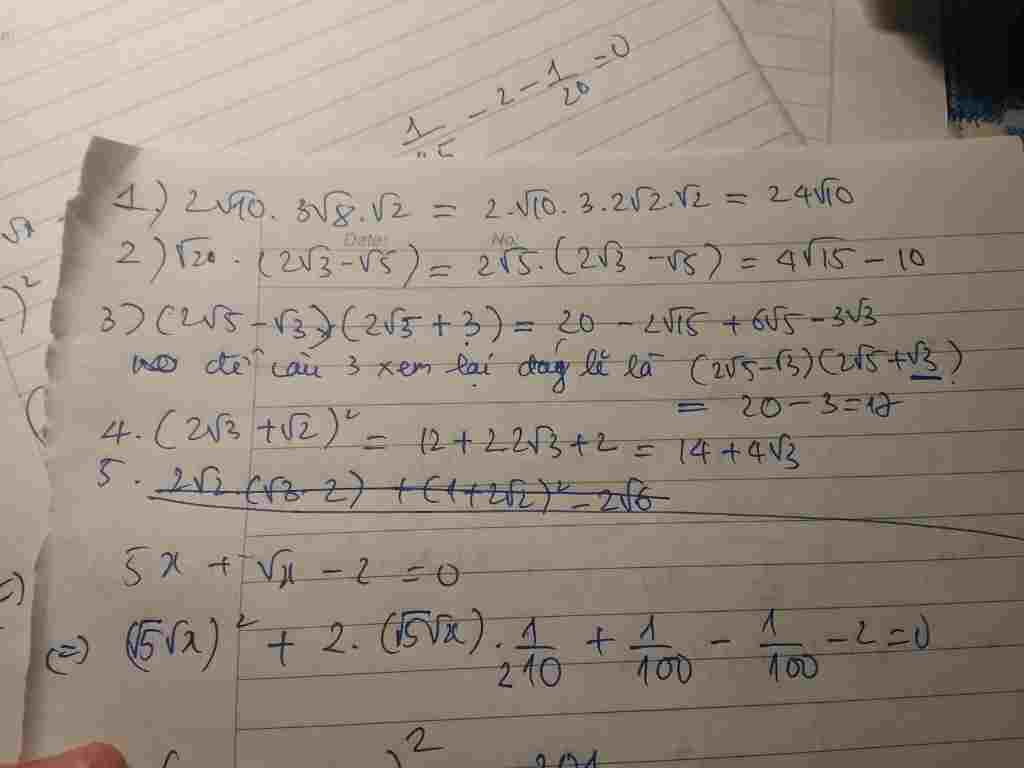 1/ - 2 - 1/20 = 0
√x
1) 2√10 . 3√8 . √2 = 2.√10 . 3 . 2√2 . √2 = 24√10
Date: No:
2) √20 . (2√3 - √5) = 2√5 . (2√3 - √5) = 4√15 - 10
)²
3) (2√5 - √3) (2√5 + 3) = 20 - 2√15 + 6√5 - 3√3
đề câu 3 xem lại đág lẽ là (2√5 - √3)(2√5 + √3)
= 20 - 3 = 17
(
4. (2√3 + √2)² = 12 + 2 2√3 + 2 = 14 + 4√3
5. 2√2 (√3 - 2) + (1 + 2√2)² - 2√6
5x + √x - 2 = 0
(=) (√5√x)² + 2. (√5√x) . 1/210 + 1/100 - 1/100 - 2 = 0
)² 201